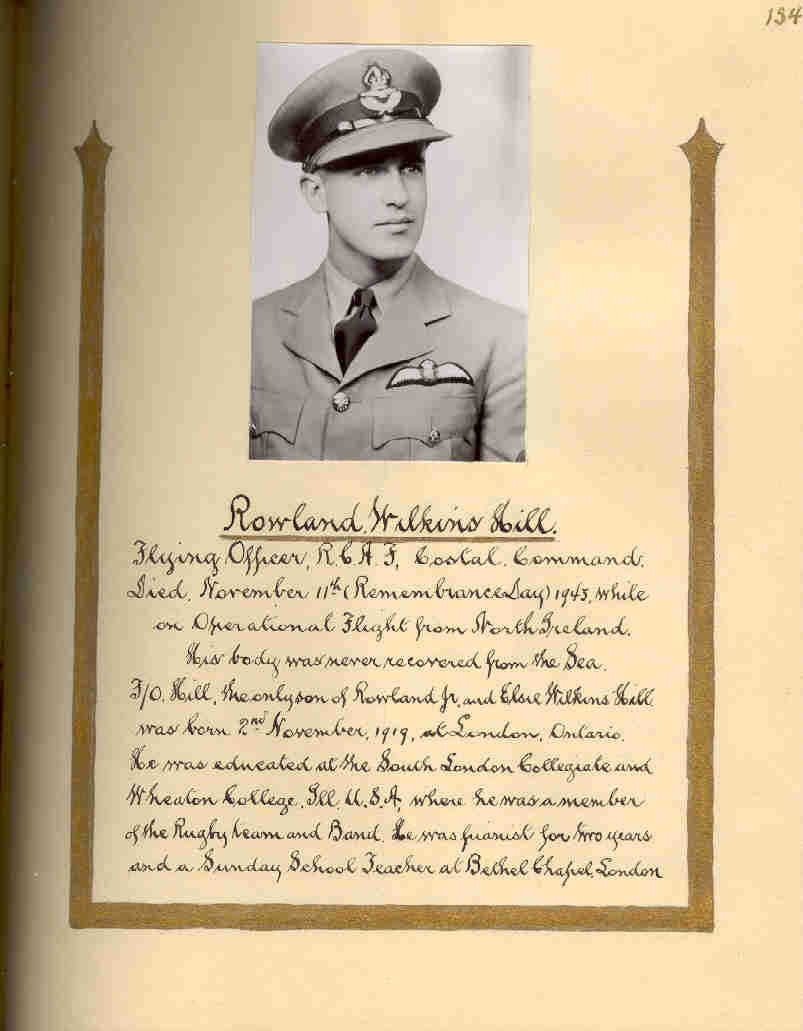 134
Rowland Wilkins Hill.
Flying Officer, R.C.A.F, Costal Command.
Died, November 11th (Remembrance Day) 1943, while
on Operational Flight from North Ireland.
His body was never recovered from the Sea.
F/O. Hill, the only son of Rowland Jr. and Elsie Wilkins Hill
was born 2nd November, 1919, at London, Ontario.
He was educated at the South London Collegiate and
Wheaton College, Ill. U.S.A, where he was a member
of the Rugby team and Band. He was pianist for two years
and a Sunday School Teacher at Bethel Chapel, London